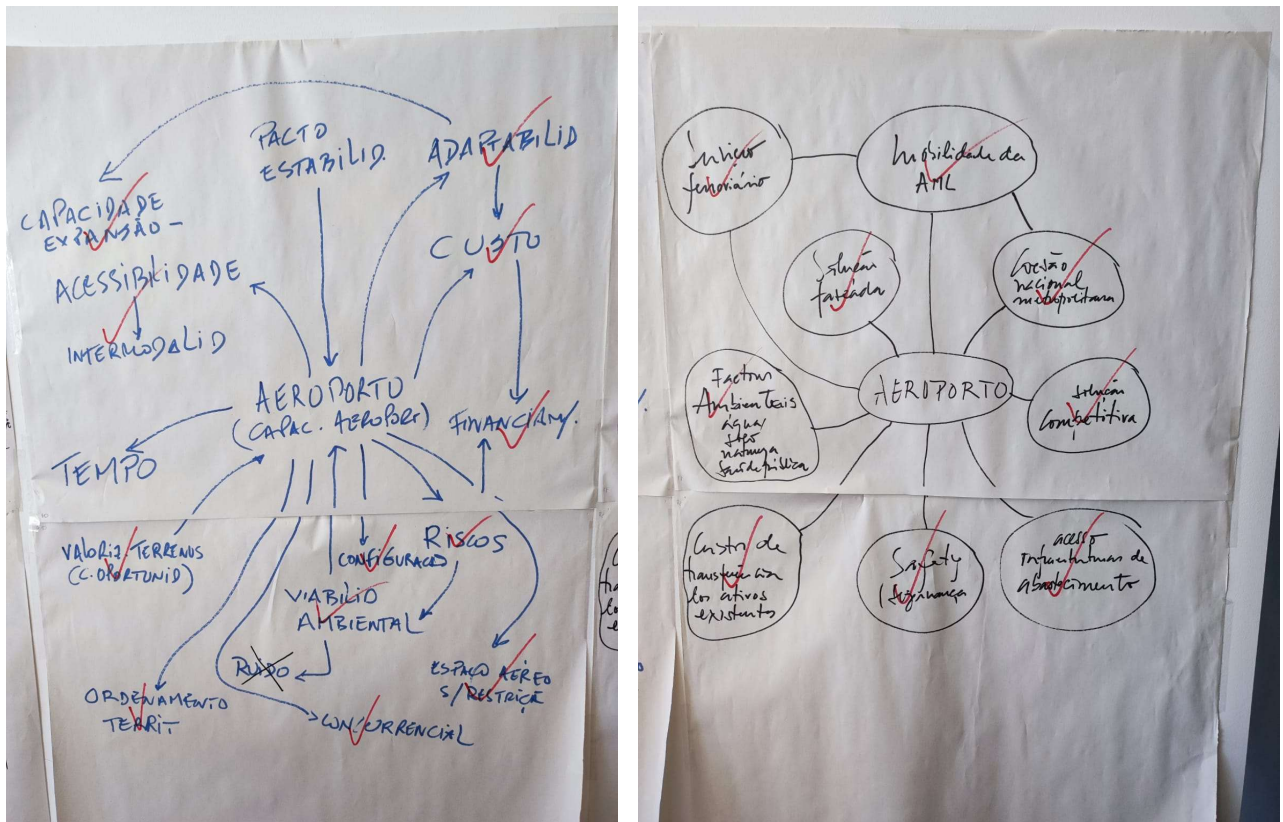 PACTO
ESTABILID.
ADAPTABILID
CAPACIDADE
EXPANSÃO -
CUSTO
ACESSIBILIDADE
INTERMODALID
AEROPORTO
(CAPAC. AEROPORT)
FINANCIAM/.
TEMPO
VALORIZ. TERRENOS
(C. OPORTUNID)
CONFIGURAÇÃO
RISCOS
VIABILID
AMBIENTAL
RUIDO
ESPAÇO AÉREO
S/RESTRIÇÃ
ORDENAMENTO
TERRIT.
CONCORRENCIAL
Serviço
ferroviário
Mobilidade da
AML
Solução
faseada
Coesão
nacional,
metropolitana
Factores
Ambientais
água
solo
natureza
saúde pública
AEROPORTO
solução
competitiva
Custo de
transferência
dos ativos
existentes
Safety
(segurança
acesso
infraestruturas de
abastecimento